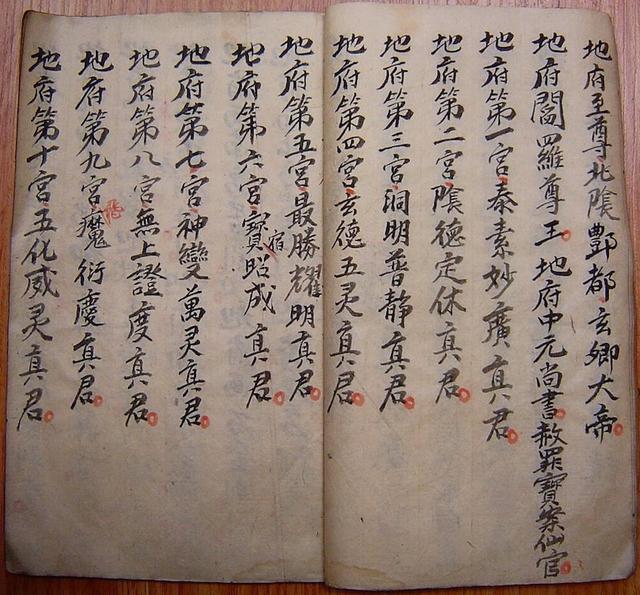 地府至尊北陰酆都玄卿大帝
地府閻羅尊王地府中元尚書赦罪寶案仙官
地府第一宮泰素妙廣真君
地府第二宮陰德定休真君
地府第三宮洞明普静真君
地府第四宮玄德五灵真君
地府第五宮最勝耀明真君
地府第六宮寶宿昭成真君
地府第七宮神變萬灵真君
地府第八宮無上證度真君
地府第九宮飛魔衍慶真君
地府第十宮五化威灵真君